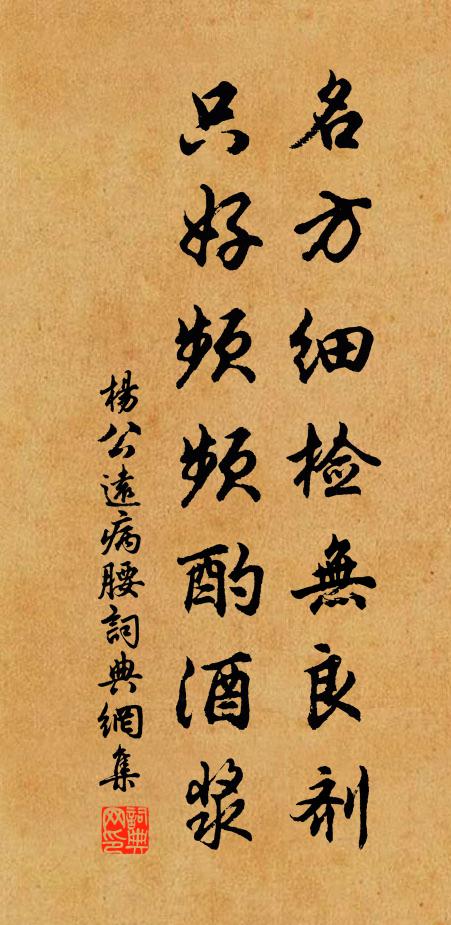 名方细检無良剂
只好频频酌酒浆
楊公遠病腰詞典網集
詞典网印